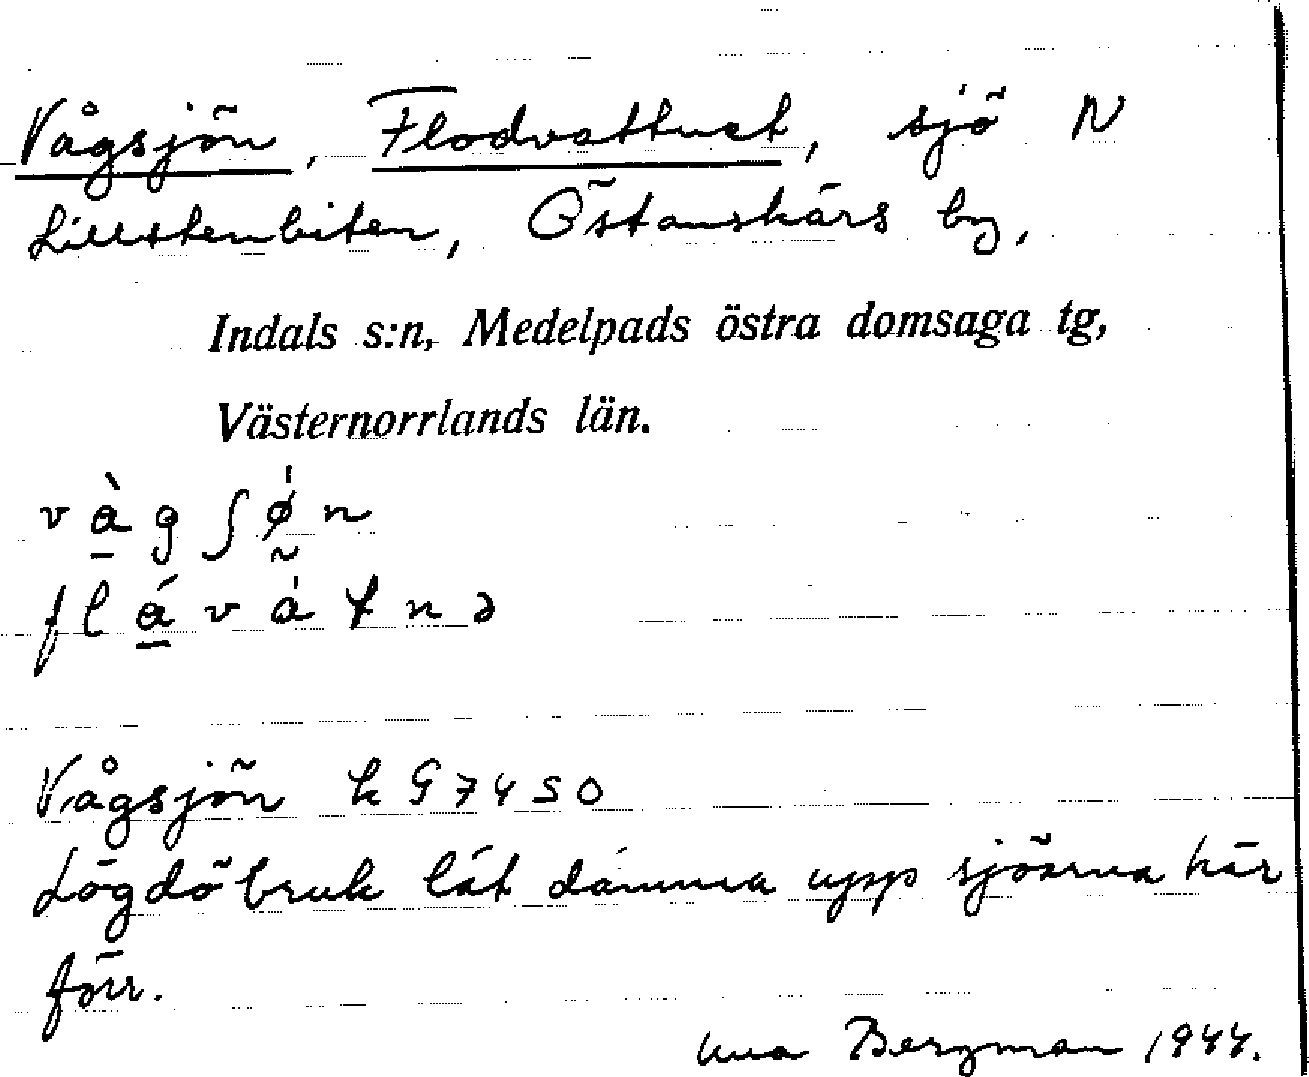 Vågsjön, Flodvattnet, sjö N
Lillstenbiten, Östanskärs by,
Indals s:n, Medelpads östra domsaga tg,
Västernorrlands län.
v à̠ g ʃ ø̰̍ n
f l á̠ v a̍ t n ə
Vågsjön k G 7450
Lögdö bruk lät dämma upp sjöarna här
förr.
Bergman 1944.